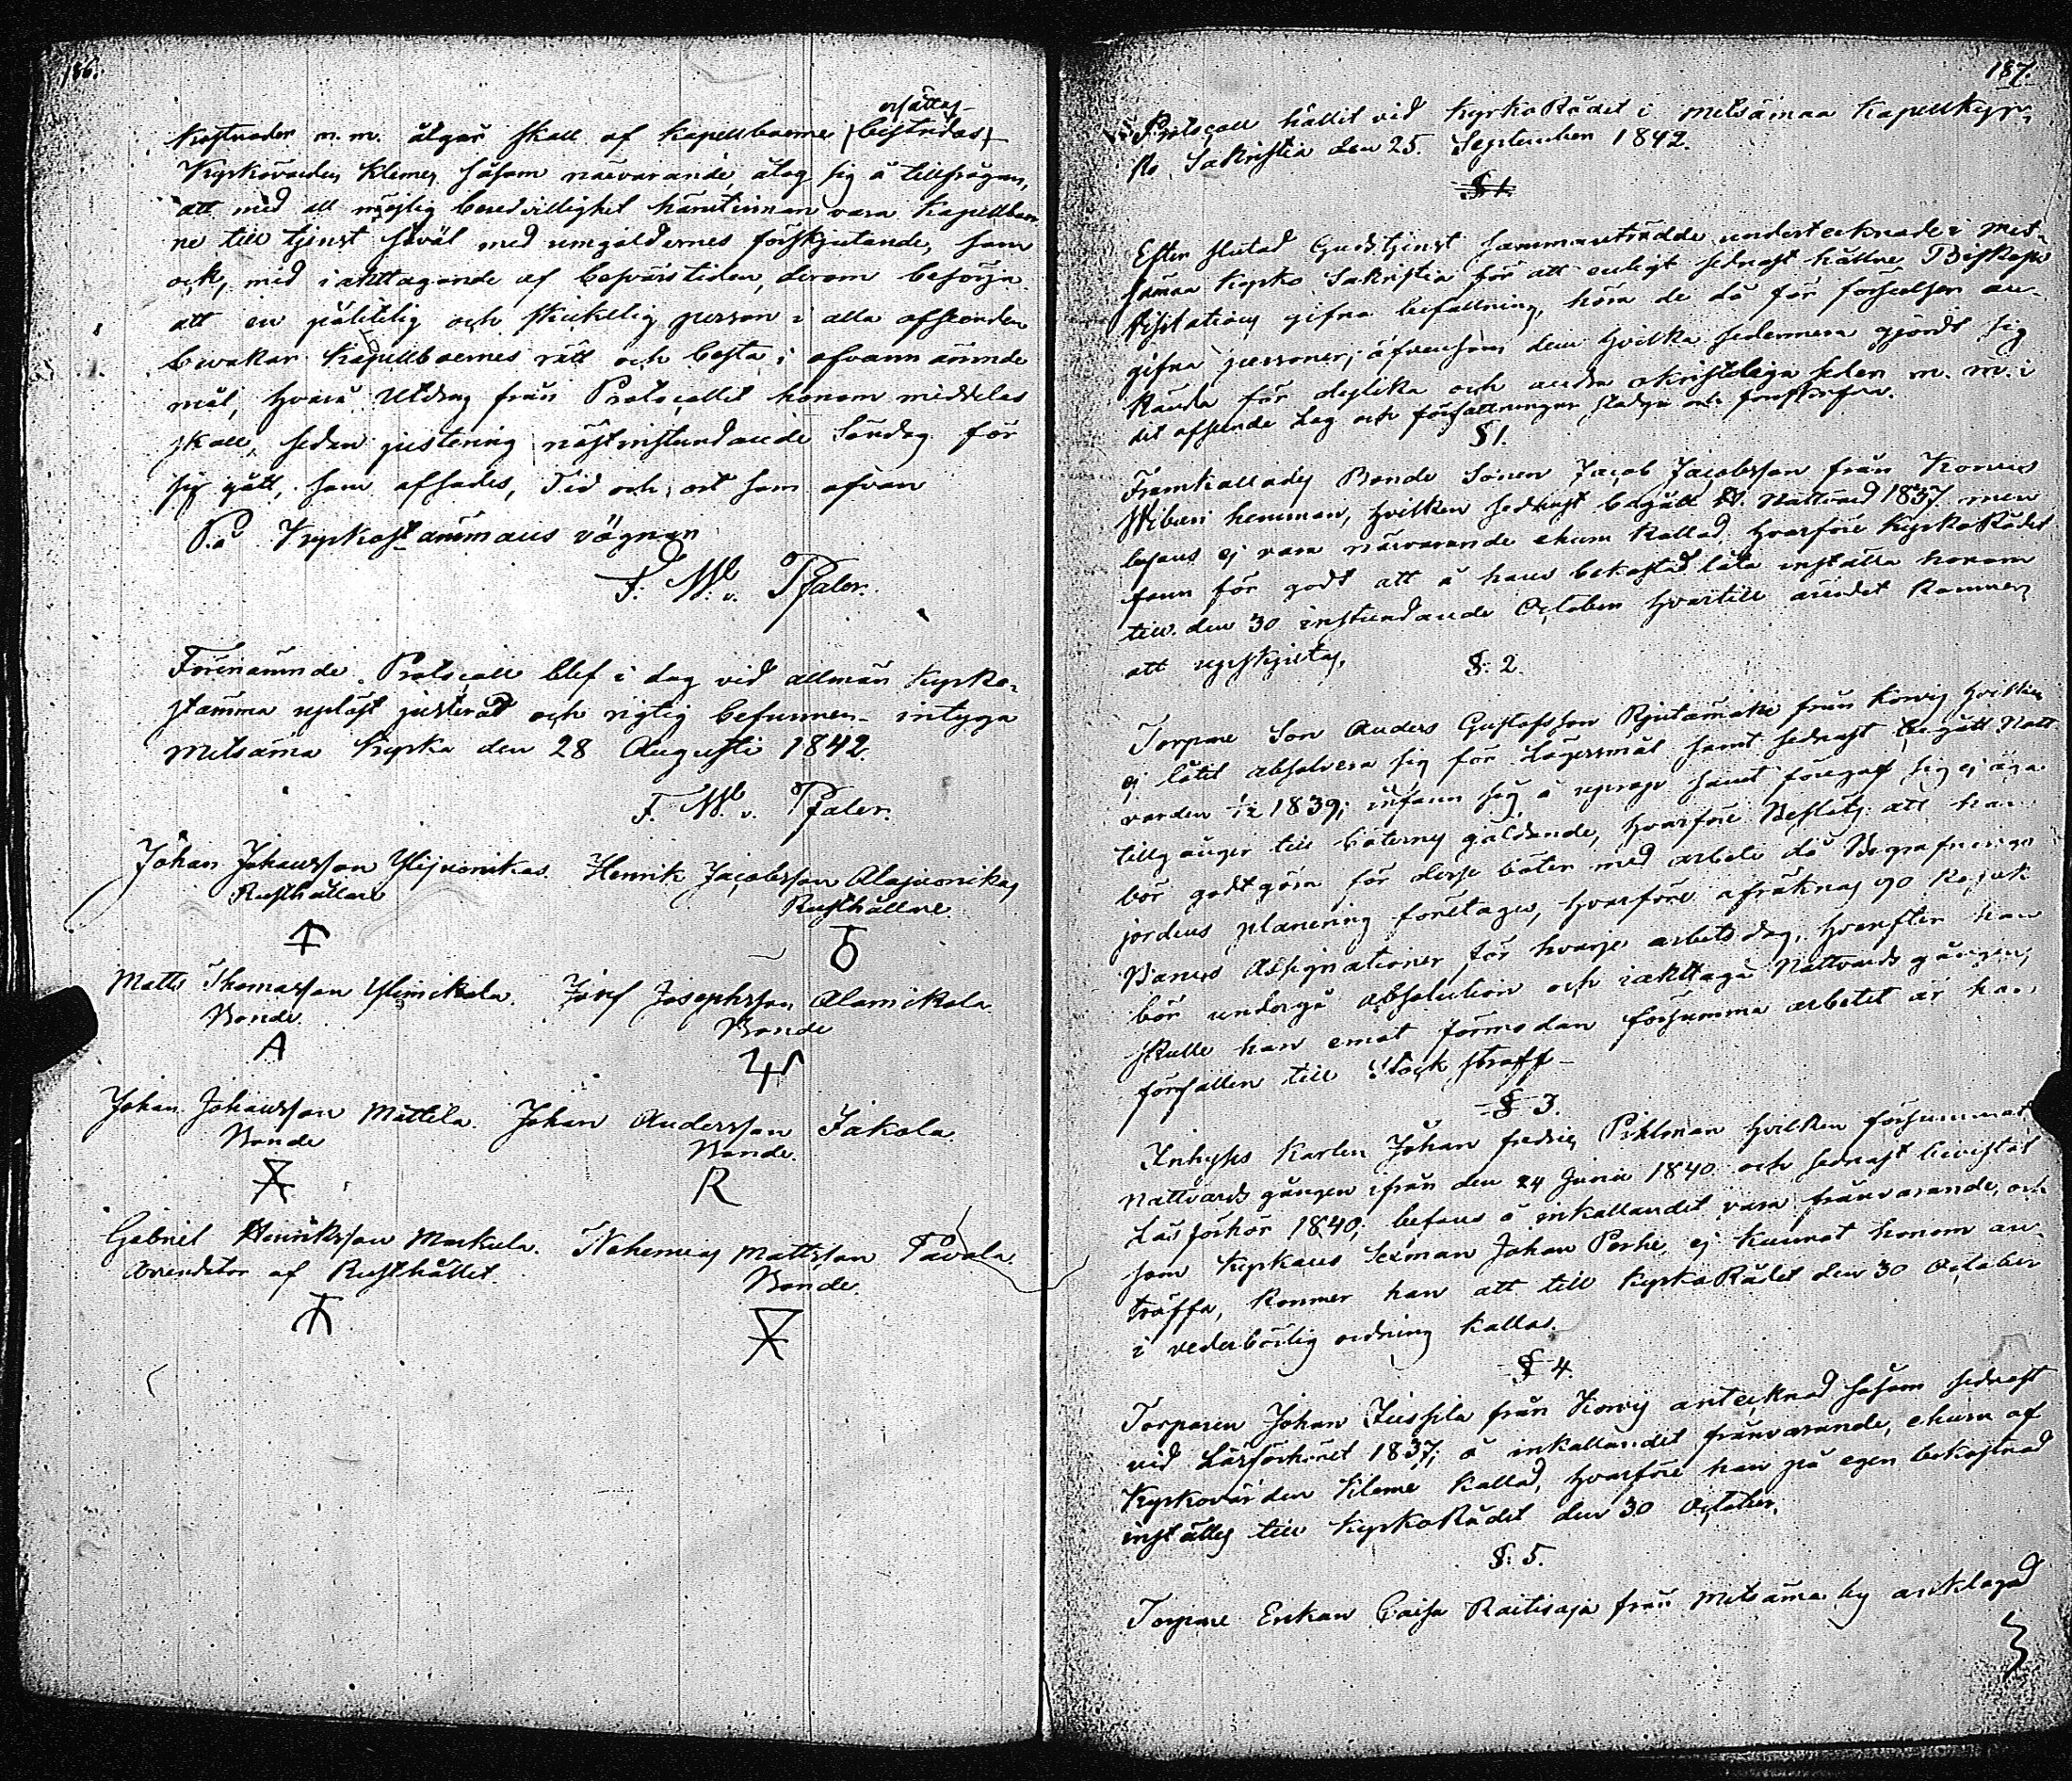 186.
ersättas
kostnader m. m. åtgår skall af Kapellboerne bestridas
Kyrkovärden Klemes såsom närvarande, åtog sig å tillfrågan,
att med all möjlig beredvillighet härutinnan vara Kapellboer-
ne till tjenst såväl med umgäldernes förskjutande, som
ock, med iakttagande af besvärstiden, derom besörja
att en pålitelig och skickelig person i alla afseenden
bevakar Kapellboernes rätt och bästa i ofvannämnde
mål, hvarå Utdrag från Protocollet honom meddelas
skall, sedan justering nästinstundande Söndag för
sig gått, som afsades, Tid och ort som ofvan
På Kyrkostämmans vägnar
F. W. v. Pfaler.
Förenämnde Protocoll blef i dag vid allmän Kyrko-
stämma upläst justerat och rigtig befunnen - intyga
Metsämaa Kyrka den 28 Augusti 1842.
F. W. v. Pfaler.
Johan Johansson Ylijvonikas. Henrik Jacobsson Alajvonikas
Rusthållare Rusthållare
Matts Thomasson Ylimikola. Josef Josephsson Alamikola
Bonde. Bonde
A
Johan Johansson Mattila. Johan Andersson Jakola.
Bonde Bonde.
R
Gabriel Henriksson Markula. Nehemias Mattsson Pavola.
Arendator af Rusthållet. Bonde.
187.
Protocoll hållit vid KyrkoRådet i Metsämaa Kapellkyr-
ko Sakristia den 25. September 1842.
§ 1.
Efter slutad Gudstjenst sammanträdde undertecknade i Met-
sämaa Kyrko Sakristia för att enligt sednast hållne Biskops
Visitations gifna befallning, höra de då för förseelser an-
gifna personer, äfvensom dem hvilka sedermera gjordt sig
kända för deslika och andra okristeliga seder m. m. i
det afseende Lag och författningar stadga och föreskrifva.
§ 1.
Framkallades Bonde Sonen Jacob Jacobsson från Korvis
Wibari hemman, hvilken sednast begått H. Nattvard 1837. men
befans ej vara närvarande ehuru kallad, hvarföre KyrkoRådet
fann för godt att å hans bekostnad låta inställa honom
till den 30 instundande October hvartill ärendet kommer
att uppskjutas.
§. 2.
Torpare Son Anders Gustafsson Rjutämäki från Korvis hvilken
ej låtit absolvera sig för Lägersmål samt sednast begått Natt-
varden 1/12 1839; infann sig å uprop samt föregaf sig ej äga
tillgångar till böternes gäldande, hvarföre Beslöts att han
bör godtgöra för dessa böter med arbete då Begrafnings
jordens planering företages, hvarföre afräknas 90 Kopek
Banco Assignationer för hvarje arbetsdag, hvarefter han
bör undergå absolution och iakttaga Nattvards gången,
skulle han emot förmodan försumma arbetet är han
förfallen till Stock straff -
§ 3.
Inhyses Karlen Johan Fredric Pihlman hvilken försummat
Nattvards gången ifrån den 24 Junii 1840 och sednast bevistat
Läsförhör 1840, befans å inkallandet vara frånvarande, och
som Kyrkans Sexman Johan Perhe, ej kunnat honom an-
träffa, kommer han att till KyrkoRådet den 30 October
i vederbörlig ordning kallas.
§ 4.
Torparen Johan Jussila från Korvis antecknad såsom sednast
vid Läsförhöret 1837, å inkallandet frånvarande, ehuru af
Kyrkovärden Kleme kallad, hvarföre han på egen bekostnad
inställes till KyrkoRådet den 30 October.
§. 5.
Torpare Enkan Caisa Raitisaja från Metsämaa by anklagad